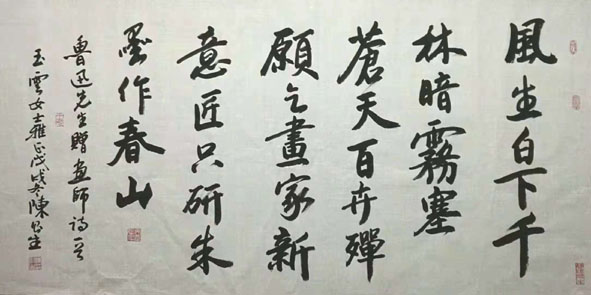 風生白下千
林暗霧塞
蒼天百卉殫
願乞畫家新
意匠只研朱
墨作春山
魯迅先生贈畫師詩一首
玉雲女士雅正戊戌冬陳昌生